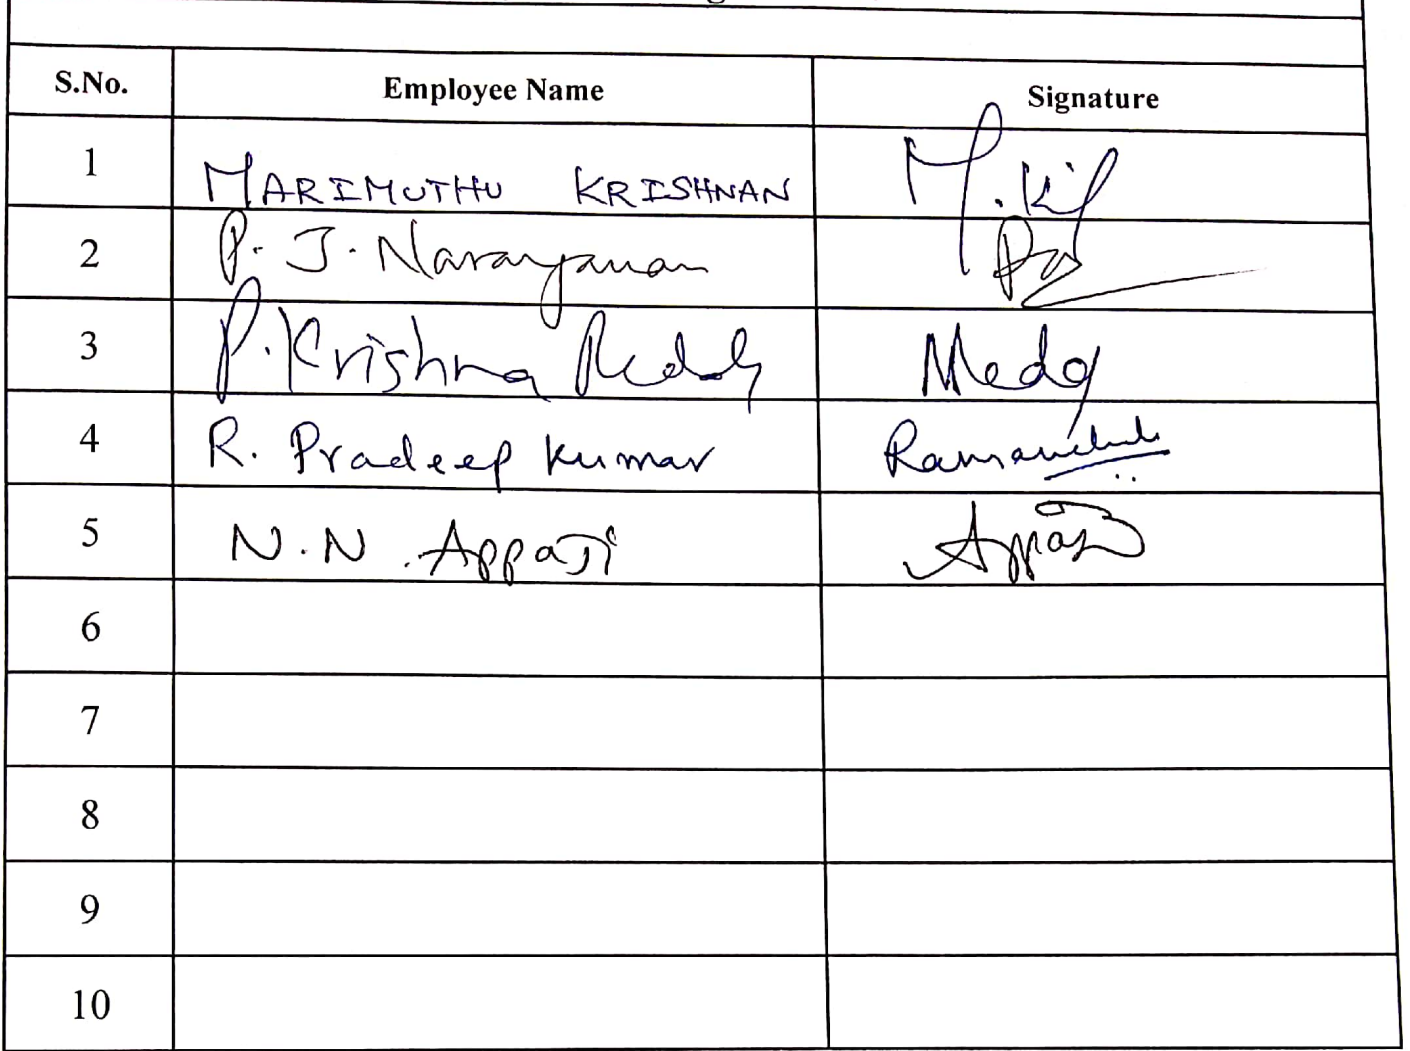 S.No. Employee Name Signature
1 MARIMUTHU KRISHNAN M.K
2 P. J. Narayanan
3 P. Krishna Reddy
4 R. Pradeep Kumar
5 N.N. AppaJi Appaji
6
7
8
9
10